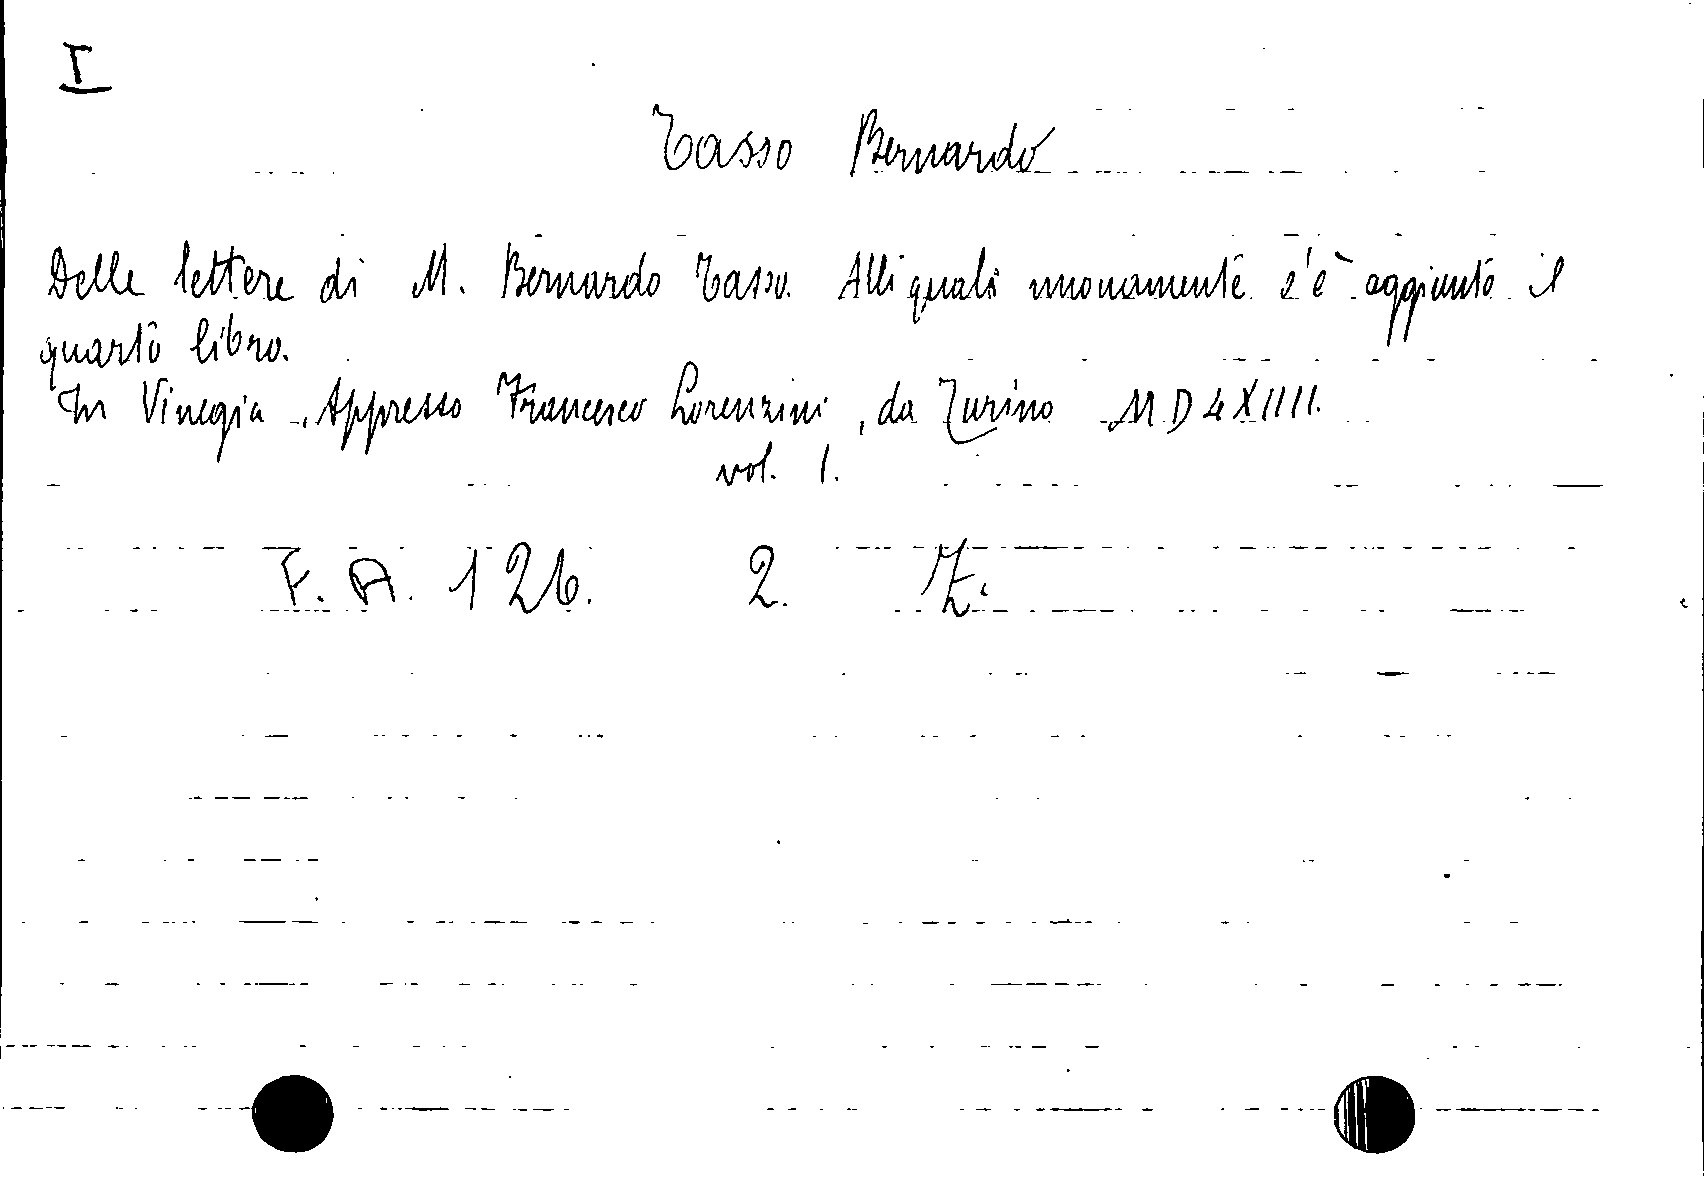 I
Tasso Bernardo
Delle lettere di M. Bernardo Tasso. Alli quali nuovamente s'è aggiunto il
quarto libro.
In Vinegia, Appresso Francesco Lorenzini, da Turino MDLXIIII.
vol. 1.
F. A. 126. 2. Z.